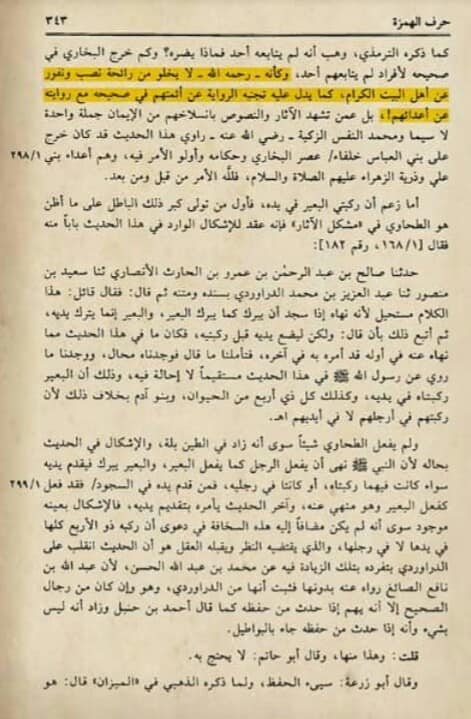 حرف الهمزة ٣٤٣
كما ذكره الترمذي، وهب أنه لم يتابعه أحد فماذا يضره؟ وكم خرج البخاري في
صحيحه لأفراد لم يتابعهم أحد، وكأنه ـ رحمه الله ـ لا يخلو من رائحة نصب ونفور
عن أهل البيت الكرام، كما يدل عليه تجنبه الرواية عن أئمتهم في صحيحه مع روايته
عن أعدائهم!، بل عمن تشهد الآثار والنصوص بانسلاخهم من الإيمان جملة واحدة
لا سيما ومحمد النفس الزكية ـ رضي الله عنه ـ راوي هذا الحديث قد كان خرج
على بني العباس خلفاء/ عصر البخاري وحكامه وأولو الأمر فيه، وهم أعداء بني ٢٩٨/١
علي وذرية الزهراء عليهم الصلاة والسلام، فللَّه الأمر من قبل ومن بعد.
أما زعم أن ركبتي البعير في يده، فأول من تولى كبر ذلك الباطل على ما أظن
هو الطحاوي في «مشكل الآثار» فإنه عقد للإشكال الوارد في هذا الحديث باباً منه
فقال [١٦٨/١، رقم ١٨٢]:
حدثنا صالح بن عبد الرحمٰن بن عمرو بن الحارث الأنصاري ثنا سعيد بن
منصور ثنا عبد العزيز بن محمد الدراوردي بسنده ومتنه ثم قال: فقال قائل: هذا
الكلام مستحيل لأنه نهاه إذا سجد أن يبرك كما يبرك البعير، والبعير إنما يترك يديه،
ثم أتبع ذلك بأن قال: ولكن ليضع يديه قبل ركبتيه، فكان ما في هذا الحديث مما
نهاه عنه في أوله قد أمره به في آخره، فتأملنا ما قال فوجدناه محال، ووجدنا ما
روي عن رسول الله ﷺ في هذا الحديث مستقيماً لا إحالة فيه، وذلك أن البعير
ركبتاه في يديه، وكذلك كل ذي أربع من الحيوان، وبنو آدم بخلاف ذلك لأن
ركبتهم في أرجلهم لا في أيديهم اهـ.
ولم يفعل الطحاوي شيئاً سوى أنه زاد في الطين بلة، والإشكال في الحديث
بحاله لأن النبي ﷺ نهى أن يفعل الرجل كما يفعل البعير، والبعير يبرك فيقدم يديه
سواء كانت فيهما ركبتاه، أو كانتا في رجليه، فمن قدم يده في السجود/ فقد فعل ٢٩٩/١
كفعل البعير وهو منهي عنه، وآخر الحديث يأمره بتقديم يديه، فالإشكال بعينه
موجود سوى أنه لم يكن مضافاً إليه هذه السخافة في دعوى أن ركبه ذو الأربع كلها
في يدها لا في رجلها، والذي يقتضيه النظر ويقبله العقل هو أن الحديث انقلب على
الدراوردي بتفرده بتلك الزيادة فيه عن محمد بن عبد الله الحسن، لأن عبد الله بن
نافع الصائغ رواه عنه بدونها فثبت أنها من الدراوردي، وهو وإن كان من رجال
الصحيح إلا أنه يهم إذا حدث من حفظه كما قال أحمد بن حنبل وزاد أنه ليس
بشيء وأنه إذا حدث من حفظه جاء بالبواطيل.
قلت: وهذا منها، وقال أبو حاتم: لا يحتج به.
وقال أبو زرعة: سيىء الحفظ، ولما ذكره الذهبي في «الميزان» قال: هو